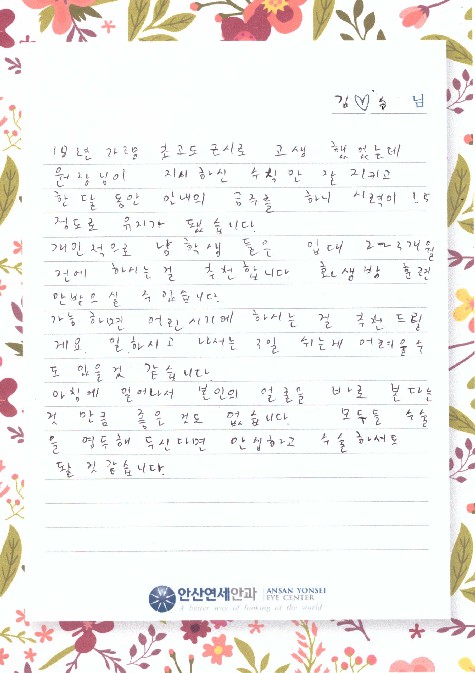 김♡송 님
15년 가량 초고도 근시로 고생 했었는데
원장님이 지시하신 수칙만 잘 지키고
한 달 동안 인내의 금주를 하니 시력이 1.5
정도로 유지가 됐습니다.
개인적으로 남학생 들은 입대 2~3개월
전에 하시는걸 추천합니다 화생방 훈련
안받으실 수 있습니다.
가능하면 어린시기에 하시는 걸 추천 드릴
게요. 일하시고 나서는 3일 쉬는게 어려울수
도 있을것 같습니다.
아침에 일어나서 본인의 얼굴을 바로 본다는
것 만큼 좋은 것도 없습니다. 모두들 수술
을 염두해 두신다면 안심하고 수술하셔도
될 것 같습니다.
안산연세안과 ANSAN YONSEI
EYE CENTER
A better way of looking at the world